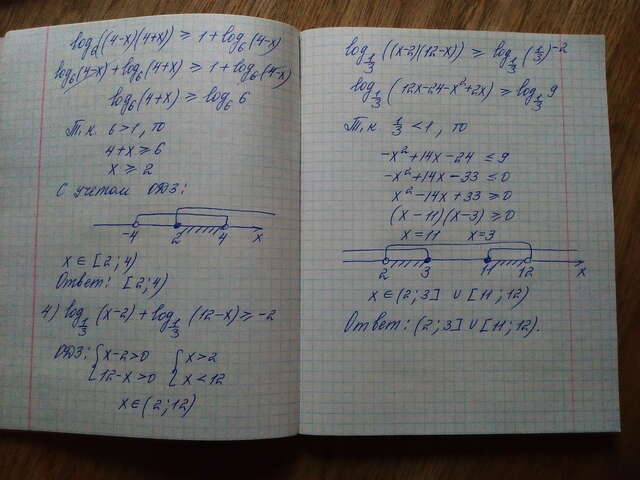 log₆((4-x)(4+x)) ≥ 1+log₆(4-x)
log₆(4-x)+log₆(4+x) ≥ 1+log₆(4-x)
log₆(4+x) ≥ log₆ 6
Т.к. 6>1, то
4+x ≥ 6
x ≥ 2
С учетом ОДЗ:
-4 2 4 x
x ∈ [2; 4)
Ответ: [2; 4)
4) log_{1/3} (x-2) + log_{1/3} (12-x) ≥ -2
ОДЗ: { x-2>0 { x>2
12-x>0 x<12
x ∈ (2; 12)
log_{1/3} ((x-2)(12-x)) ≥ log_{1/3} (1/3)^{-2}
log_{1/3} (12x-24-x²+2x) ≥ log_{1/3} 9
Т.к. 1/3 < 1, то
-x²+14x-24 ≤ 9
-x²+14x-33 ≤ 0
x²-14x+33 ≥ 0
(x-11)(x-3) ≥ 0
x=11 x=3
2 3 11 12 x
x ∈ (2; 3] ∪ [11; 12)
Ответ: (2; 3] ∪ [11; 12).